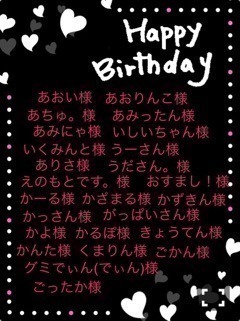 Happy
Birthday
あおい様　あおりんこ様
あちゅ。様　あみったん様
あみにゃ様　いしいちゃん様
いくみんと様 うーさん様
ありさ様　うださん。様
えのもとです。様　おすまし！様
かーる様 かざまる様 かずきん様
かっさん様　がっぱいさん様
かよ様 かるぼ様 きょうてん様
かんた様 くまりん様 ごかん様
グミでぃん(でぃん)様
ごったか様